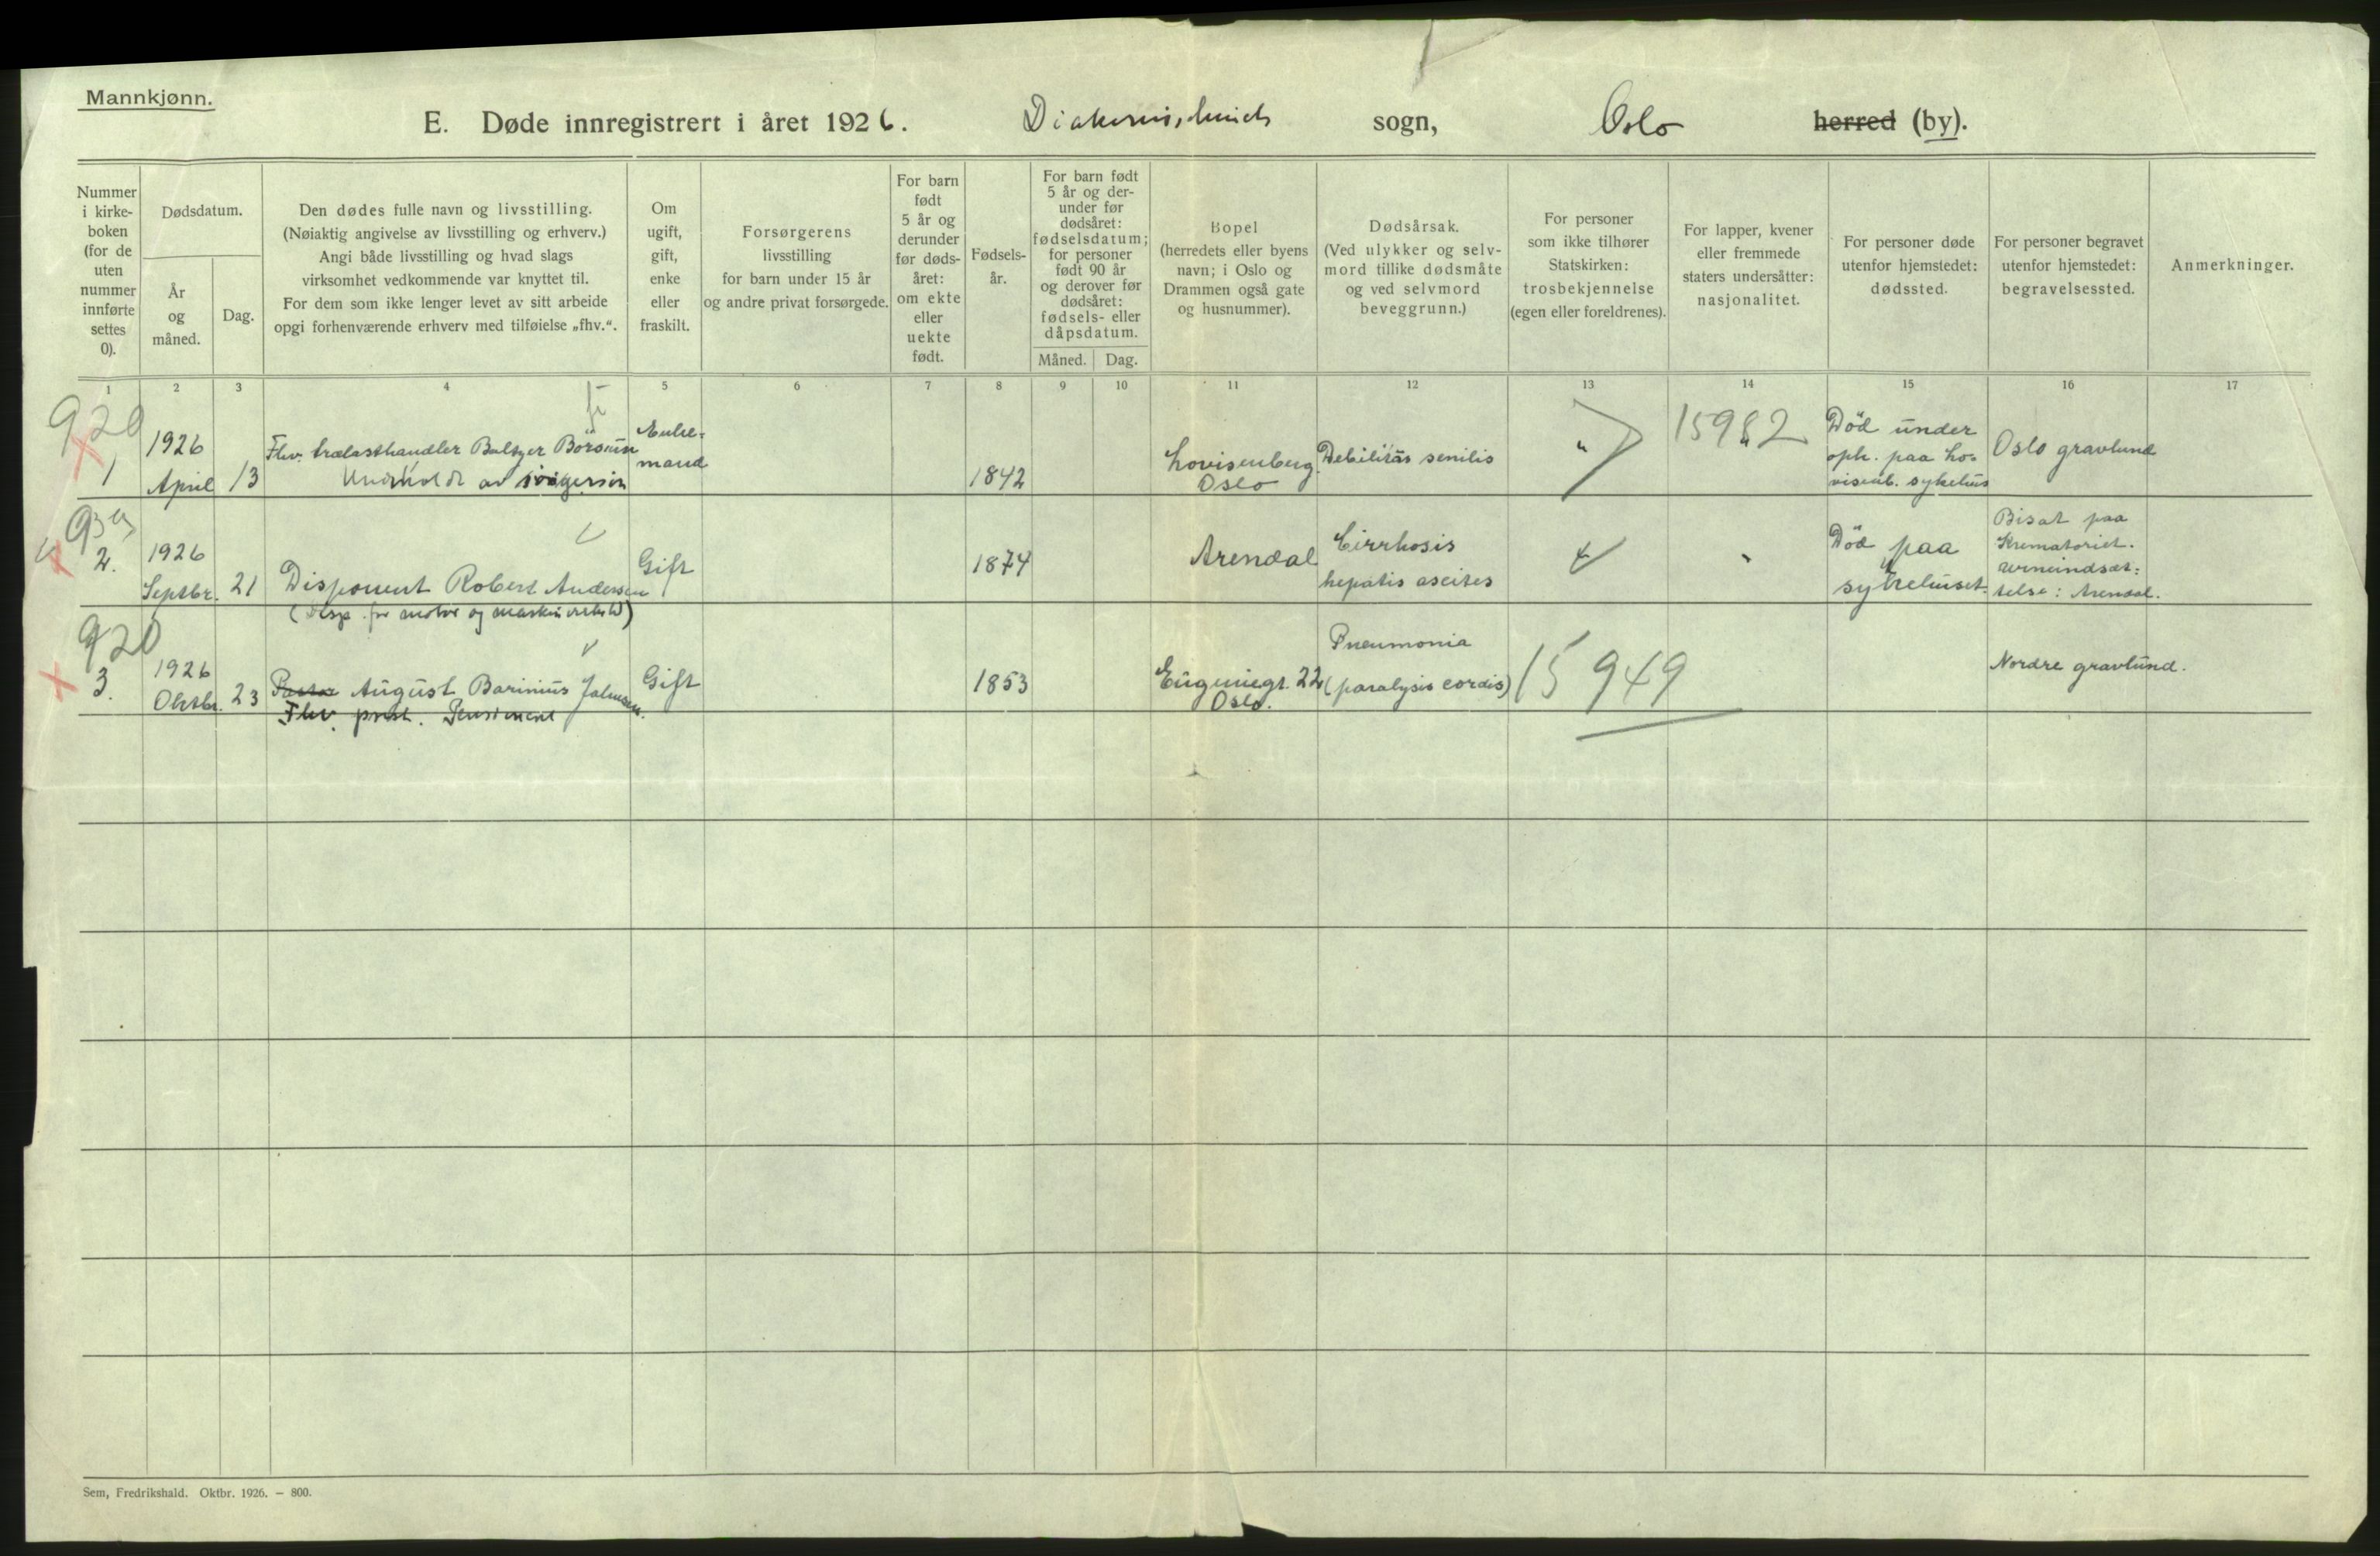 Mannkjønn.
E. Døde innregistrert i året 1926. sogn, Oslo herred (by).
Nummer
i kirke-
boken
(for de
uten
nummer
innførte
settes
0).
Dødsdatum.
År
og
måned.
Dag.
Den dødes fulle navn og livsstilling.
(Nøiaktig angivelse av livsstilling og erhverv.)
Angi både livsstilling og hvad slags
virksomhet vedkommende var knyttet til.
For dem som ikke lenger levet av sitt arbeide
opgi forhenværende erhverv med tilføielse „fhv.“.
Om
ugift,
gift,
enke
eller
fraskilt.
Forsørgerens
livsstilling
for barn under 15 år
og andre privat forsørgede.
For barn
født
5 år og
derunder
før døds-
året:
om ekte
eller
uekte
født.
Fødsels-
år.
For barn født
5 år og der-
under før
dødsåret:
fødselsdatum;
for personer
født 90 år
og derover før
dødsåret:
fødsels- eller
dåpsdatum.
Måned. Dag.
Bopel
(herredets eller byens
navn; i Oslo og
Drammen også gate
og husnummer).
Dødsårsak.
(Ved ulykker og selv-
mord tillike dødsmåte
og ved selvmord
beveggrunn.)
For personer
som ikke tilhører
Statskirken:
trosbekjennelse
(egen eller foreldrenes).
For lapper, kvener
eller fremmede
staters undersåtter:
nasjonalitet.
For personer døde
utenfor hjemstedet:
dødssted.
For personer begravet
utenfor hjemstedet:
begravelsessted.
Anmerkninger.
1 2 3 4 5 6 7 8 9 10 11 12 13 14 15 16 17
920
1
1926
April 13
Fhv. trælasthandler Baltzer Börsum
av svigersøn
Enke-
mand
1842
Lovisenberg
Oslo
Debilitas senilis
"
15982
Död under
oph. paa Lo-
visenb. sykehus
Oslo gravlund
2.
1926
Septbr. 21
Disponent Robert Andersen
(Disp. for motor og maskin
Gift
1874
Arendal
Cirrhosis
hepatis ascites
Död paa
sykehuset.
Bisat paa
Krematoriet.
urneindsæt-
telse: Arendal.
920
3.
1926
Oktbr. 23
Pastor August Barinius
Fhv. prest. Pensionert
Gift
1853
Eugeniegt. 22
Oslo.
Pneumonia
(paralysis cordis)
15949
Nordre gravlund.
Sem, Fredrikshald. Oktbr. 1926. – 800.